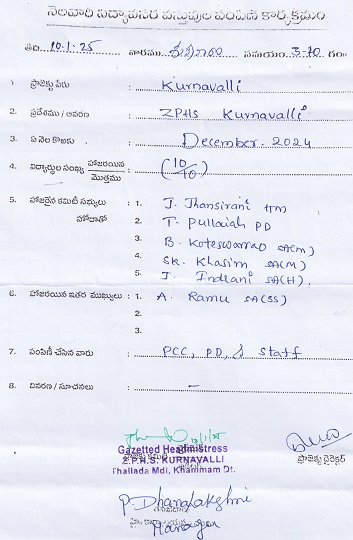 నెలవారి విద్యావసర వస్తువుల పంపిణీ కార్యక్రమం
తేది 10.1.25 వారము శుక్రవారం సమయం 3-10 గం
1 ప్రాజెక్టు పేరు : Kurnavalli
2. ప్రదేశము / ఆవరణ : ZPHS Kurnavalli
3. ఏ నెల కొఱకు : December. 2024
4. విద్యార్థుల సంఖ్య హాజరయిన / మొత్తము : (10/10)
5. హాజరైన కమిటీ సభ్యులు : 1. J. Jhansirani HM
హోదాతో 2. T. Pullaiah PD
3. B. Koteswarrao SA(M)
4. SK. Khasim SA(M)
5. J. Indrani SA(H).
6. హాజరయిన ఇతర ముఖ్యులు : 1. A. Ramu SA(SS)
2.
3.
7. పంపిణీ చేసిన వారు : PCC, PD, & staff
8. వివరణ / సూచనలు : –
10/1/25
Gazetted Headmistress
Z.P.H.S. KURNAVALLI
Thallada Mdl, Khammam Dt.
ప్రాజెక్టు డైరెక్టర్
P. Dhanalakshmi
Manager